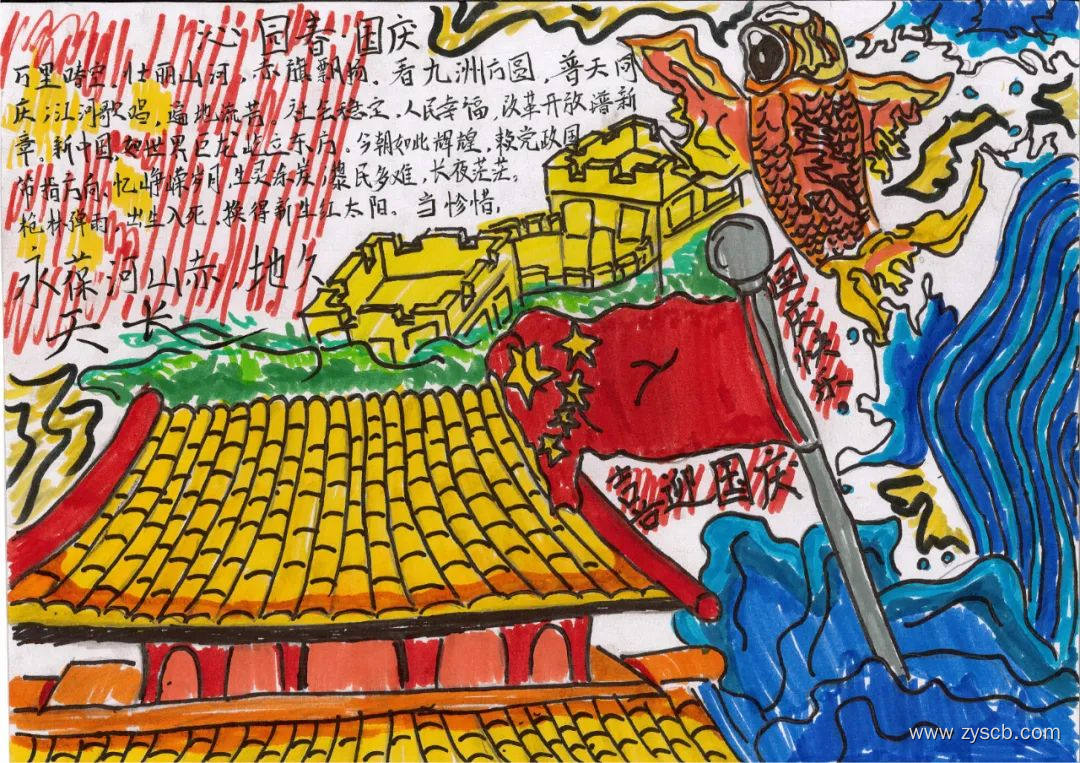 沁园春·国庆
万里晴空,壮丽山河,赤旗飘扬。看九洲方圆,普天同
庆;江河歌唱,遍地流芳。社会稳定,人民幸福,改革开放谱新
章。新中国,如世界巨龙屹立东方。今朝如此辉煌,赖党政国
指方向。忆峥嵘岁月,生灵涂炭,黎民多难,长夜茫茫。
枪林弹雨,出生入死,换得新生红太阳。当惨惜,
永葆河山赤,地久
天长
国庆快乐
喜迎国庆
www.zyscb.com